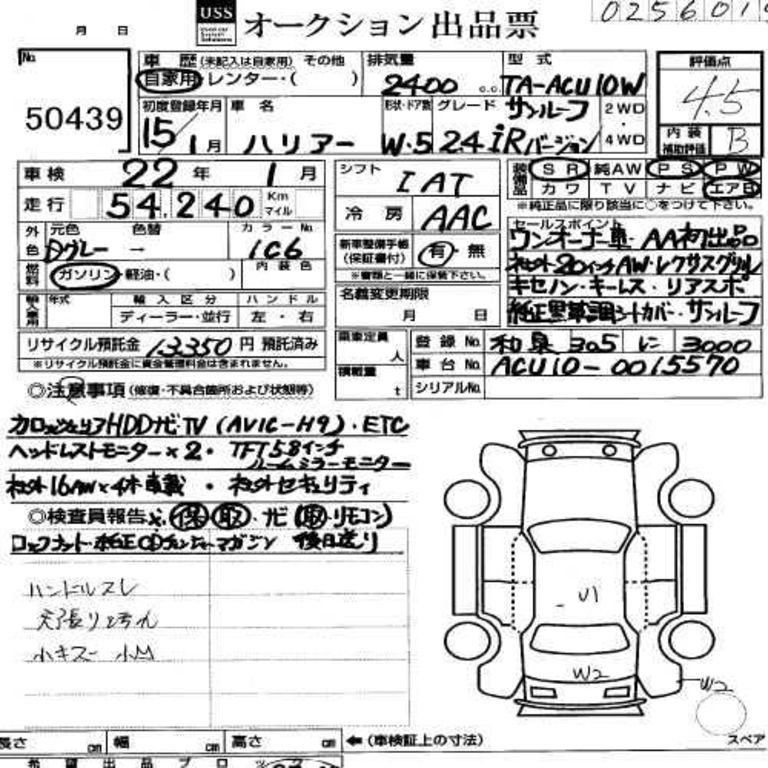 USS オークション出品票 025601
月 日
No. 50439
車歴(未記入は自家用) その他 排気量 型式 評価点
自家用 レンター・( ) 2400 c.c. TA-ACU10W 4.5
初度登録年月 車名 形状・ドア数 グレード サンルーフ 2WD・4WD
15/1月 ハリアー W・5 2.4 iRバージョン
内装補助評価 B
車検 22年 1月 シフト IAT 装備品 SR 純AW PS PW
走行 54,240 Km マイル 冷房 AAC カワ TV ナビ エアB
※純正品に限り該当に○をつけて下さい。
外色 元色 色替 カラーNo.
Dグレー → 1C6
新車整備手帳(保証書付) 有・無
※書類と一緒に保管下さい。
セールスポイント
ワンオーナー車・AA初出品
社外20インチAW・レクサスグリル
キセノン・キーレス・リアスポ
純正黒革調シートカバー・サンルーフ
燃料 ガソリン・軽油・( ) 内装色
輸入車用 年式 輸入区分 ハンドル
ディーラー・並行 左・右
名義変更期限
月 日
リサイクル預託金 13350 円 預託済み
※リサイクル預託金に資金管理料金は含まれません。
乗車定員 人
積載量 t
登録No. 和泉 305 に 3000
車台No. ACU10-0015570
シリアルNo.
◎注意事項(修復・不具合箇所および状態等)
カロッツェリアHDDナビ・TV (AVIC-H9)・ETC
ヘッドレストモニター×2・TFT5.8インチ
ルームミラーモニター
社外16AW×4本車載・社外セキュリティ
◎検査員報告 ※ 保 取・ナビ(取・リモコン)
ロックナット・純正CDチェンジャーマガジン 後日送り
ハンドルスレ
天張りよごれ
小キズ 小凹
U1
W2
W2
スペア
長さ cm 幅 cm 高さ cm ←(車検証上の寸法)
希望出品ブロック